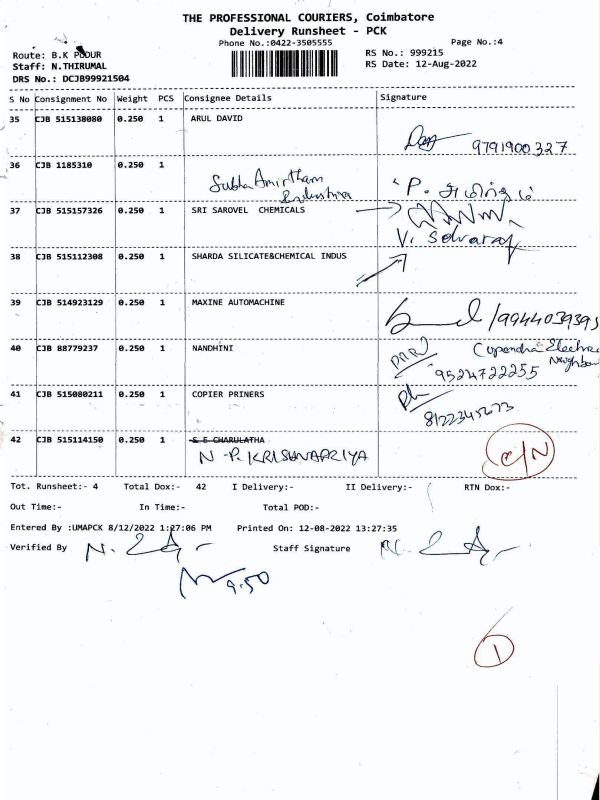 THE PROFESSIONAL COURIERS, Coimbatore
Delivery Runsheet - PCK
Phone No.:0422-3505555
Page No.:4
Route: B.K PUDUR
RS No.: 999215
Staff: N.THIRUMAL
RS Date: 12-Aug-2022
DRS No.: DCJB99921504
S No Consignment No Weight PCS Consignee Details Signature
35 CJB 515138080 0.250 1 ARUL DAVID
9791900327
36 CJB 1185310 0.250 1
Subha Amirtham
P. அமிர்தம்
37 CJB 515157326 0.250 1 SRI SAROVEL CHEMICALS
V. Selvaraj
38 CJB 515112308 0.250 1 SHARDA SILICATE&CHEMICAL INDUS
39 CJB 514923129 0.250 1 MAXINE AUTOMACHINE
/9944039395
40 CJB 88779237 0.250 1 NANDHINI
9524722255
41 CJB 515080211 0.250 1 COPIER PRINERS
8122345673
42 CJB 515114150 0.250 1 S E CHARULATHA
N-P. KRISHNAPRIYA
C/N
Tot. Runsheet:- 4 Total Dox:- 42 I Delivery:- II Delivery:- RTN Dox:-
Out Time:- In Time:- Total POD:-
Entered By :UMAPCK 8/12/2022 1:27:06 PM Printed On: 12-08-2022 13:27:35
Verified By Staff Signature
9.50
1